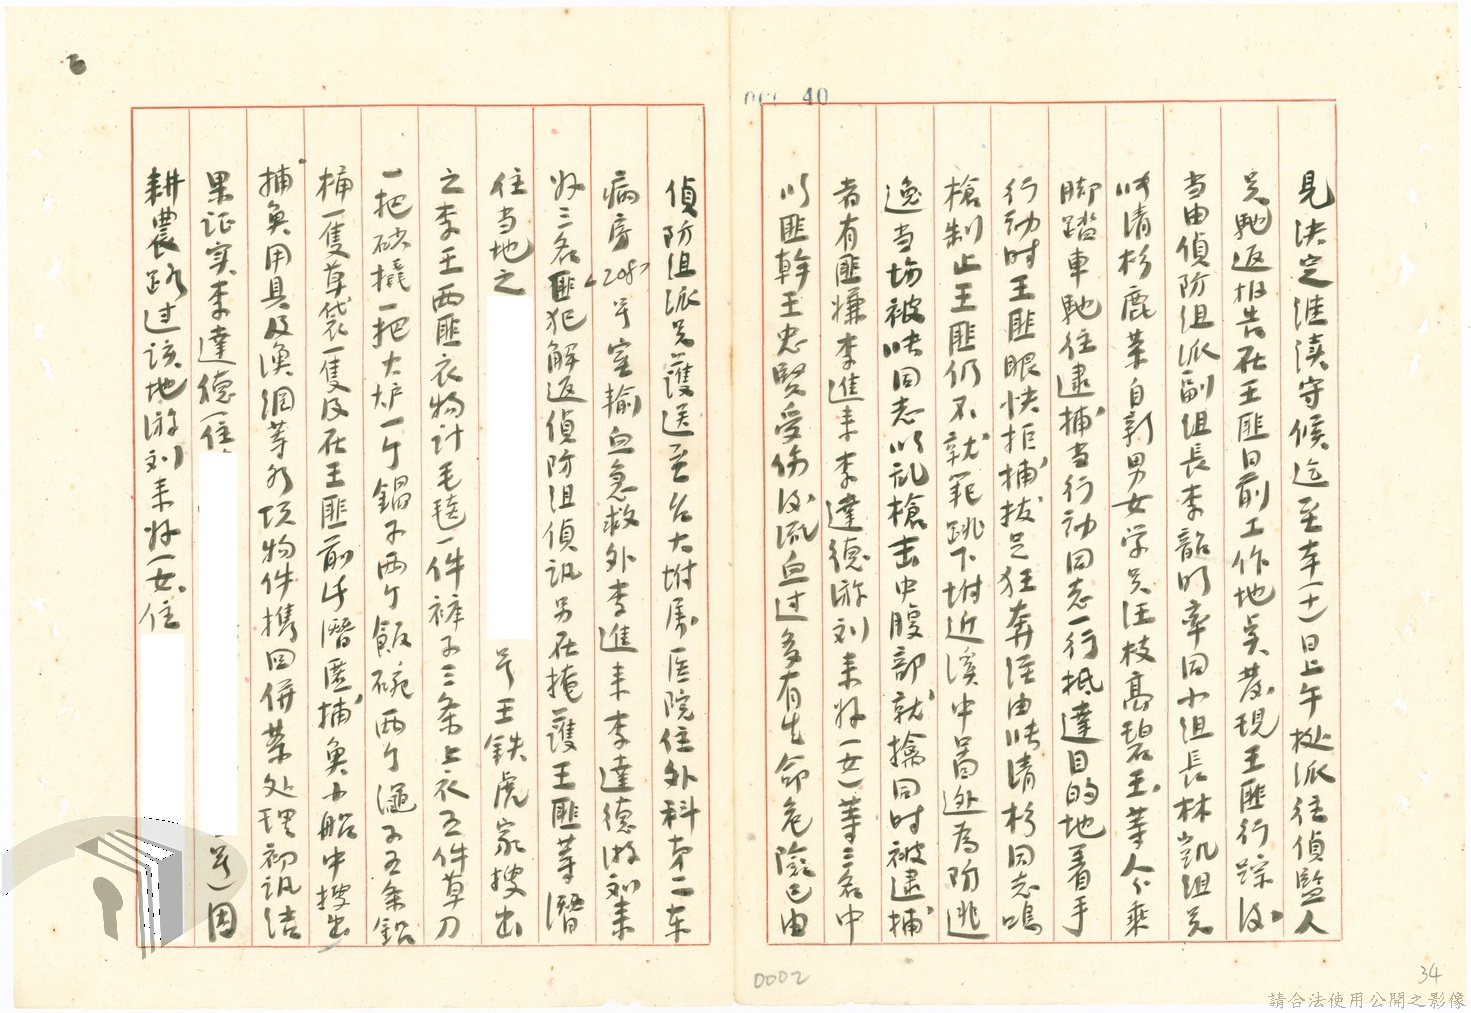 40
見決定繼續守候迄至本(十一)日上午挺派往偵監人
员馳返报告在王匪日前工作地奌發現王匪行踪後
当由偵防组派副组長李韶明率同小组長林凱组员
陈清杉鹿業自新男女学员汪枝高碧玉等人分乘
脚踏車馳往逮捕当行动同志一行抵達目的地着手
行动时王匪眼快拒捕拔足狂奔经由陈清杉同志鳴
槍制止王匪仍不就範跳下附近溪中啚逃為防逃
逸当場被陈同志以乱槍击中腹部就擒同时被逮捕
者有匪嫌李進来李達德游刘来好(女)等三名中
以匪幹王忠賢受伤後流血过多有生命危險已由
偵防组派员護送至台大附属医院住外科第二东
病房208号室输血急救外李進来李達德游刘来
好三名匪犯解返偵防组偵訊另在掩護王匪等潛
住当地之 号王鉄虎家搜出
之李王两匪衣物计毛毯一件褲子三条上衣五件草刀
一把砍撬一把大炉一个鍋子两个飯碗两个繩子五条鋁
桶一隻草袋一隻及在王匪前此潛匿捕魚小船中搜出
捕魚用具及漁網等各项物件携回併業处理初訊结
果证实李達德(住 号)因
耕農路过该地游刘来好(女.住
0002
34
請合法使用公開之影像